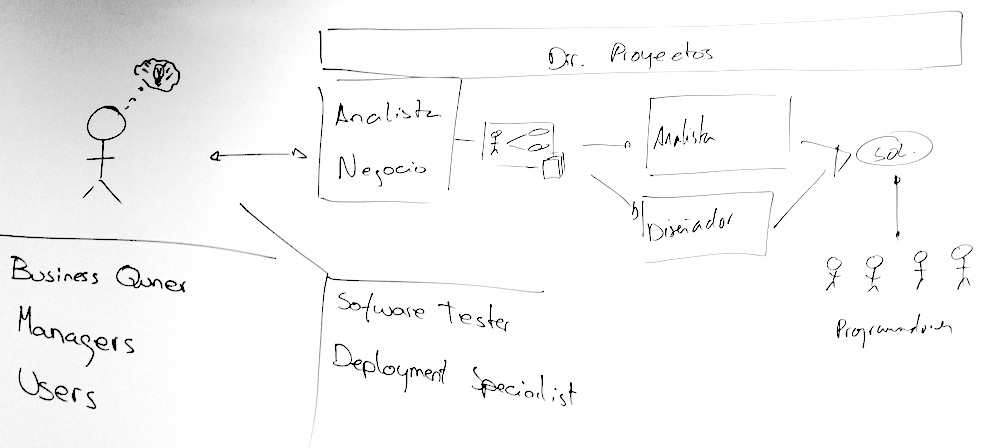 Dir. Proyectos
Analista
Negocio
Analista
Diseñador
SOL.
Programadores
Business Owner
Managers
Users
Software Tester
Deployment Specialist